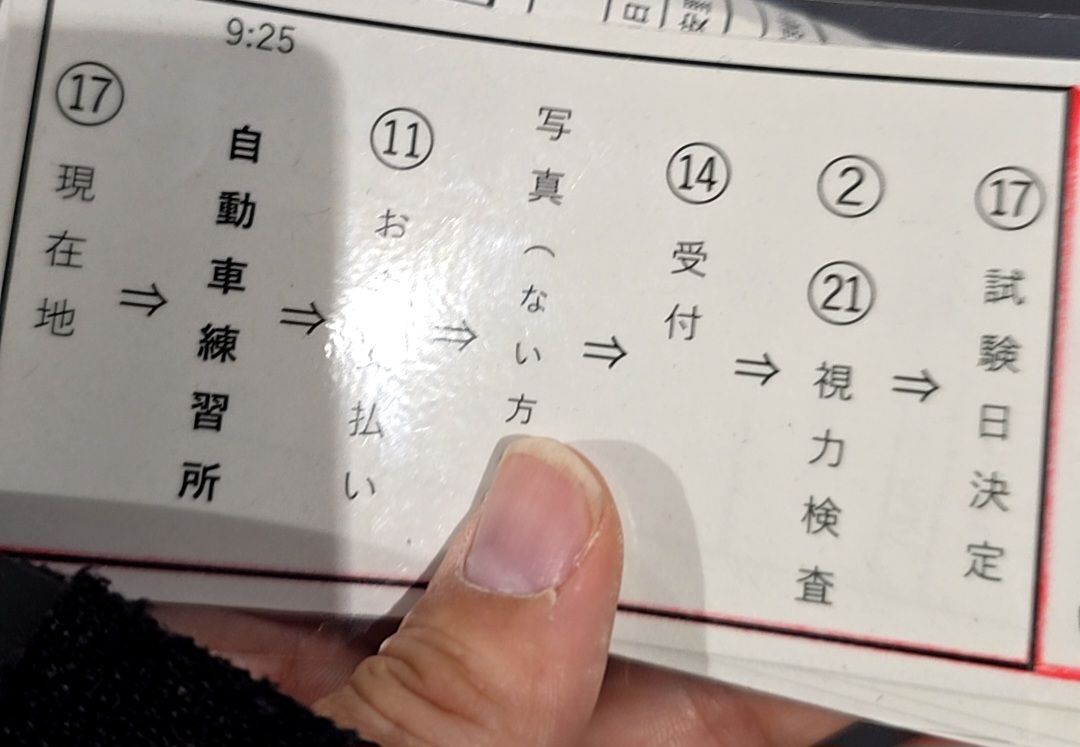 9:25
⑰現在地
⇒
自動車練習所
⇒
⑪お
払い
⇒
写真(ない方
⇒
⑭受付
⇒
②㉑視力検査
⇒
⑰試験日決定